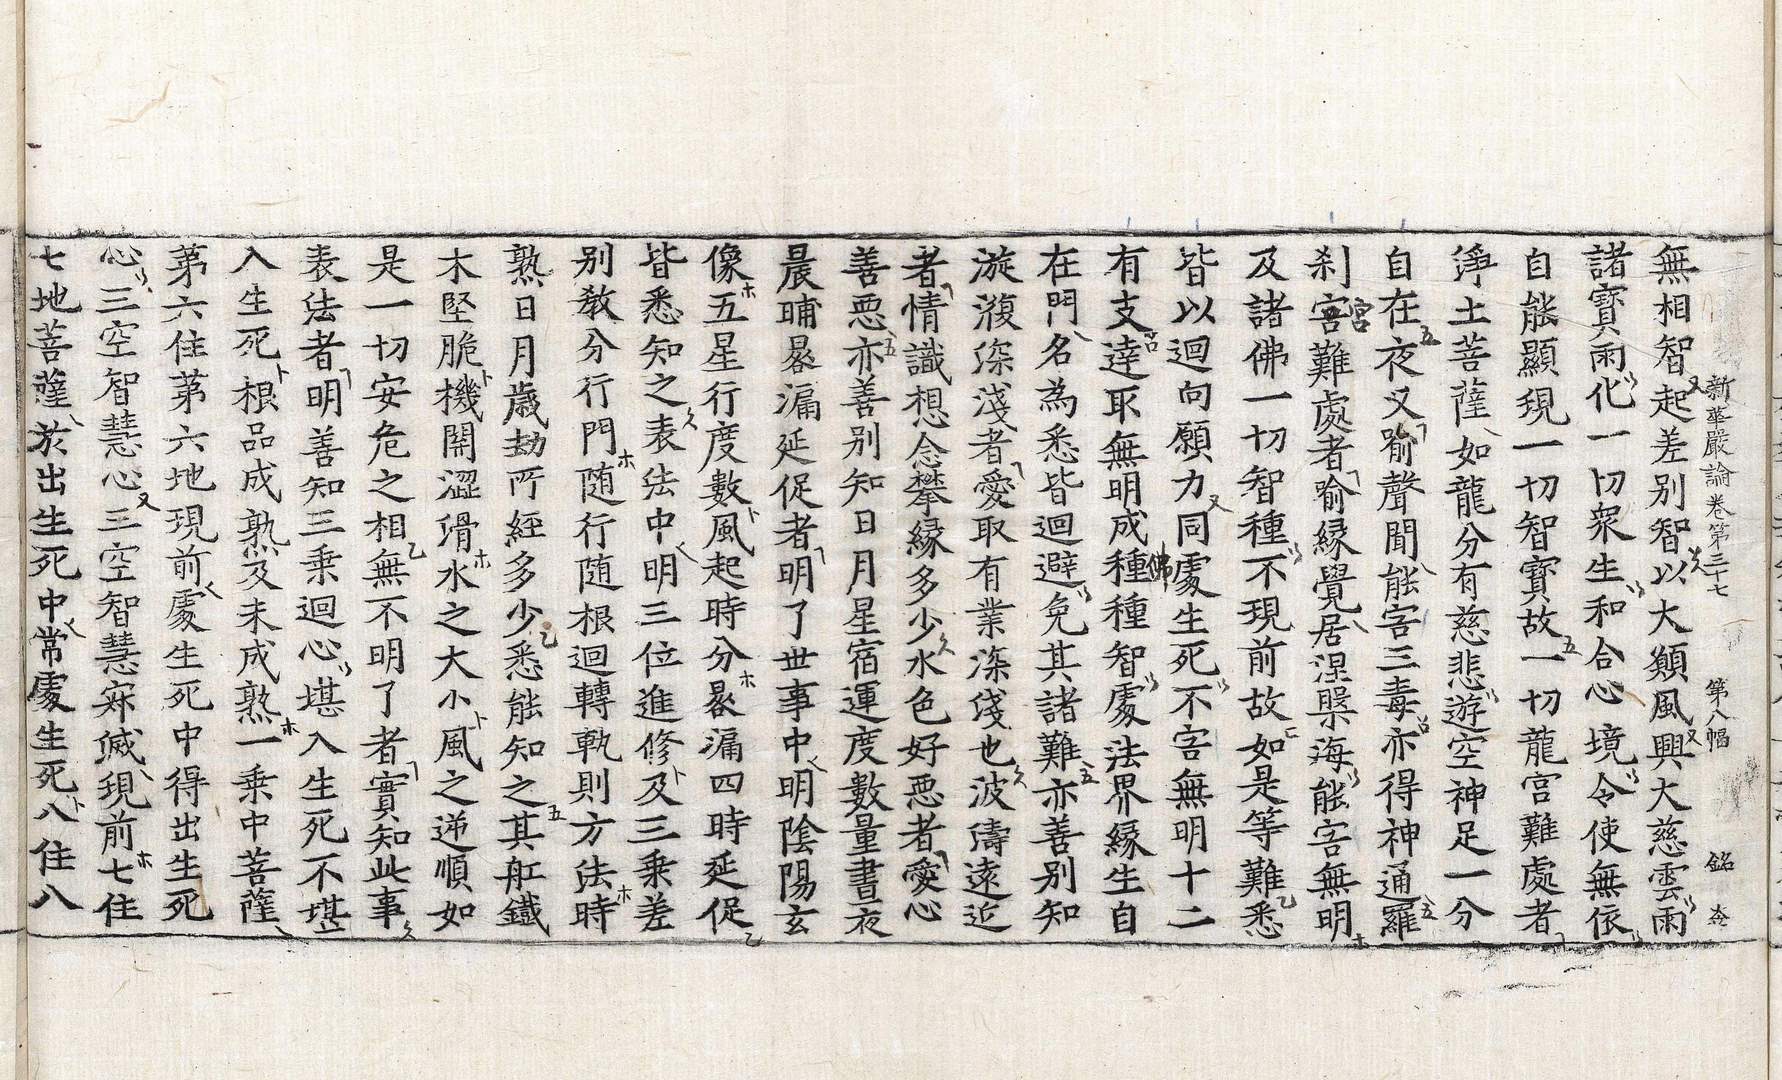 新華嚴論卷第三十七　第八幅　銘　夳
無相智起差別智以大願風興大慈雲雨
諸寶雨化一切衆生和合心境令使無依
自能顯現一切智寶故一切龍宮難處者
淨土菩薩如龍分有慈悲遊空神足一分
自在夜叉喻聲聞能害三毒亦得神通羅
刹害難處者喻緣覺居涅槃海能害無明
宮
及諸佛一切智種不現前故如是等難悉
皆以迴向願力同處生死不害無明十二
有支達取無明成種種智處法界緣生自
佛
在門名為悉皆迴避免其諸難亦善別知
漩澓深淺者愛取有業深淺也波濤遠近
者情識想念攀緣多少水色好惡者愛心
善惡亦善別知日月星宿運度數量晝夜
晨晡晷漏延促者明了世事中明陰陽玄
像五星行度數風起時分晷漏四時延促
皆悉知之表法中明三位進修及三乘差
別教分行門隨行隨根迴轉軌則方法時
熟日月歲劫所經多少悉能知之其舡鐵
木堅脆機關澀滑水之大小風之逆順如
是一切安危之相無不明了者實知此事
表法者明善知三乘迴心堪入生死不堪
入生死根品成熟及未成熟一乘中菩薩
第六住第六地現前處生死中得出生死
心三空智慧心三空智慧寂滅現前七住
七地菩薩於出生死中常處生死八住八